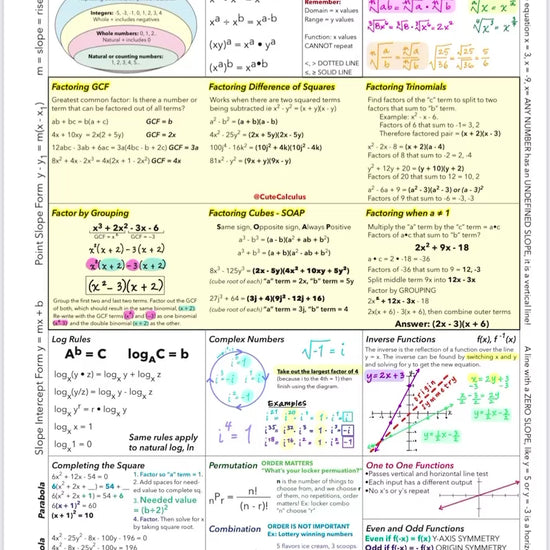 Integers: -5, -3, -1, 0, 1, 2, 3, 4
Whole + includes negatives
Whole numbers: 0, 1, 2..
Natural + includes 0
Natural or counting numbers:
1, 2, 3, 4, 5...
x^a ÷ x^b = x^a-b
(xy)^a = x^a • y^a
(x^a)^b = x^a•b
Remember:
Domain = x values
Range = y values
Function: x values
CANNOT repeat
<, > DOTTED LINE
≤, ≥ SOLID LINE
Factoring GCF
Greatest common factor: Is there a number or
term that can be factored out of all terms?
ab + bc = b(a + c) GCF = b
4x + 10xy = 2x(2 + 5y) GCF = 2x
12abc - 3ab + 6ac = 3a(4bc - b + 2c) GCF = 3a
8x² + 4x - 2x³ = 4x(2x + 1 - 2x²) GCF = 4x
Factoring Difference of Squares
Works when there are two squared terms
being subtracted ie x² - y² = (x + y)(x - y)
a² - b² = (a + b)(a - b)
4x² - 25y² = (2x + 5y)(2x - 5y)
100j⁴ - 16k² = (10j² + 4k)(10j² - 4k)
81x² - y² = (9x + y)(9x - y)
@CuteCalculus
Factoring Trinomials
Find factors of the "c" term to split to two
factors that sum to "b" term?
Example: x² - x - 6.
Factors of 6 that sum to -1= 3, 2
Therefore factored pair = (x + 2)(x - 3)
x² - 2x - 8 = (x + 2)(x - 4)
Factors of 8 that sum to -2 = 2, -4
y² + 12y + 20 = (y + 10)(y + 2)
Factors of 20 that sum to 12 = 10, 2
a² - 6a + 9 = (a² - 3)(a² - 3) or (a - 3)²
Factors of 9 that sum to -6 = -3, -3
Factor by Grouping
x³ + 2x² - 3x - 6
GCF = x² GCF = -3
x²(x + 2) - 3(x + 2)
x²(x + 2) - 3(x + 2)
(x² - 3)(x + 2)
Group the first two and last two terms. Factor out the GCF
of both, which should result in the same binomial, (x + 2)
Re-write with the GCF terms (x²) and (-3) as one binomial
(x²-3) and the double binomial (x + 2) as the other.
Factoring Cubes - SOAP
Same sign, Opposite sign, Always Positive
a³ - b³ = (a - b)(a² + ab + b²)
a³ + b³ = (a + b)(a² - ab + b²)
8x³ - 125y³ = (2x - 5y)(4x² + 10xy + 5y²)
(cube root of each) "a" term = 2x, "b" term = 5y
27j³ + 64 = (3j + 4)(9j² - 12j + 16)
(cube root of each) "a" term = 3j, "b" term = 4
Factoring when a ≠ 1
Multiply the "a" term by the "c" term = a•c
Factors of a•c that sum to "b" term?
2x² + 9x - 18
a • c = 2 • -18 = -36
Factors of -36 that sum to 9 = 12, -3
Split middle term 9x into 12x - 3x
Factor by GROUPING
2x² + 12x - 3x - 18
2x(x + 6) - 3(x + 6), then combine outer terms
Answer: (2x - 3)(x + 6)
Log Rules
A^b = C log_A C = b
log_x (y • z) = log_x y + log_x z
log_x (y/z) = log_x y - log_x z
log_x y^r = r • log_x y
log_x x = 1
log_x 1 = 0
Same rules apply
to natural log, ln
Complex Numbers
√-1 = i
Take out the largest factor of 4
(because i to the 4th = 1) then
finish using the diagram.
Examples
i⁴ = 1
Inverse Functions f(x), f⁻¹(x)
The inverse is the reflection of a function over the line
y = x. The inverse can be found by switching x and y
and solving for y to get the new equation.
y = 2x + 3
origin
symmetry
x = 2y + 3
y = ½x - 3/2
Completing the Square
6x² + 12x - 54 = 0
6(x² + 2x + __) = 54 + __
6(x² + 2x + 1) = 54 + 6
6(x + 1)² = 60
(x + 1)² = 10
4x² - 25y² - 8x - 100y - 196 = 0
4x² - 8x - 25y² - 100y = 196
1. Factor so "a" term = 1.
2. Add spaces for need-
ed value to complete sq.
3. Needed value
= (b÷2)²
4. Factor. Then solve for x
by taking square root.
Permutation ORDER MATTERS
"What's your locker permutation?"
nPr =
n!
(n - r)!
n is the number of things
to choose from, and we choose r
of them, no repetitions, order
matters! Ex: locker combo
"n" choose "r"
Combination ORDER IS NOT IMPORTANT
Ex: Lottery winning numbers
5 flavors ice cream, 3 scoops
One to One Functions
•Passes vertical and horizontal line test
•Each input has a different output
•No x's or y's repeat
Even and Odd Functions
Even if f(-x) = f(x) Y-AXIS SYMMETRY
Odd if f(-x) = -f(x) ORIGIN SYMMETRY
Point Slope Form y - y₁ = m(x - x₁)
Slope Intercept Form y = mx + b
Parabola